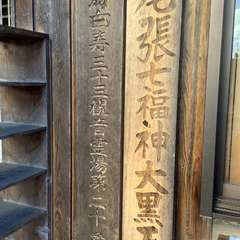 尾張七福神大黒天
白寿三十三観音霊場第二十